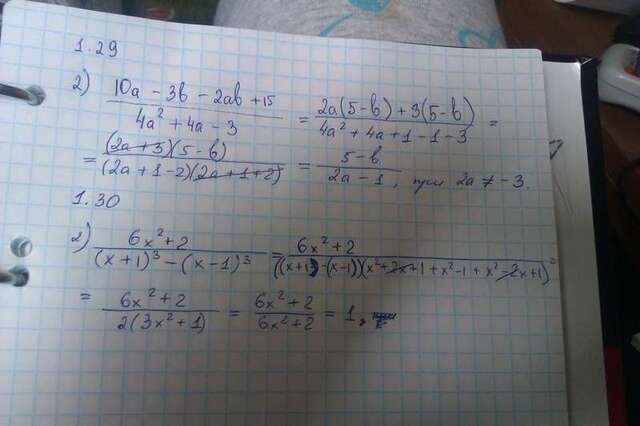 1.29
2) (10a - 3b - 2ab + 15)/(4a² + 4a - 3) = (2a(5-b) + 3(5-b))/(4a² + 4a + 1 - 1 - 3) =
= ((2a+3)(5-b))/((2a+1-2)(2a+1+2)) = (5-b)/(2a-1), при 2a ≠ -3.
1.30
2) (6x²+2)/((x+1)³ - (x-1)³) = (6x²+2)/(((x+1)-(x-1))(x²+2x+1+x²-1+x²-2x+1)) =
= (6x²+2)/(2(3x²+1)) = (6x²+2)/(6x²+2) = 1,